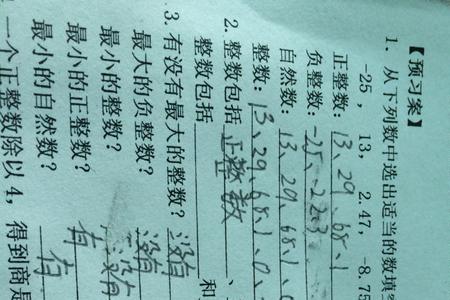 【预习案】
1. 从下列数中选出适当的数填
-25， 13， 2.47， -8.75
正整数：13、29、68、1
负整数：-25、-223
自然数：13、29、68、1、
整数：13、29、68、1、0、
2. 整数包括 正整数 、
整数包括 和
3. 有没有最大的整数？没有
最大的负整数？没有
最小的整数？没有
最小的正整数？有
最小的自然数？有
一个正整数除以4，得到商是